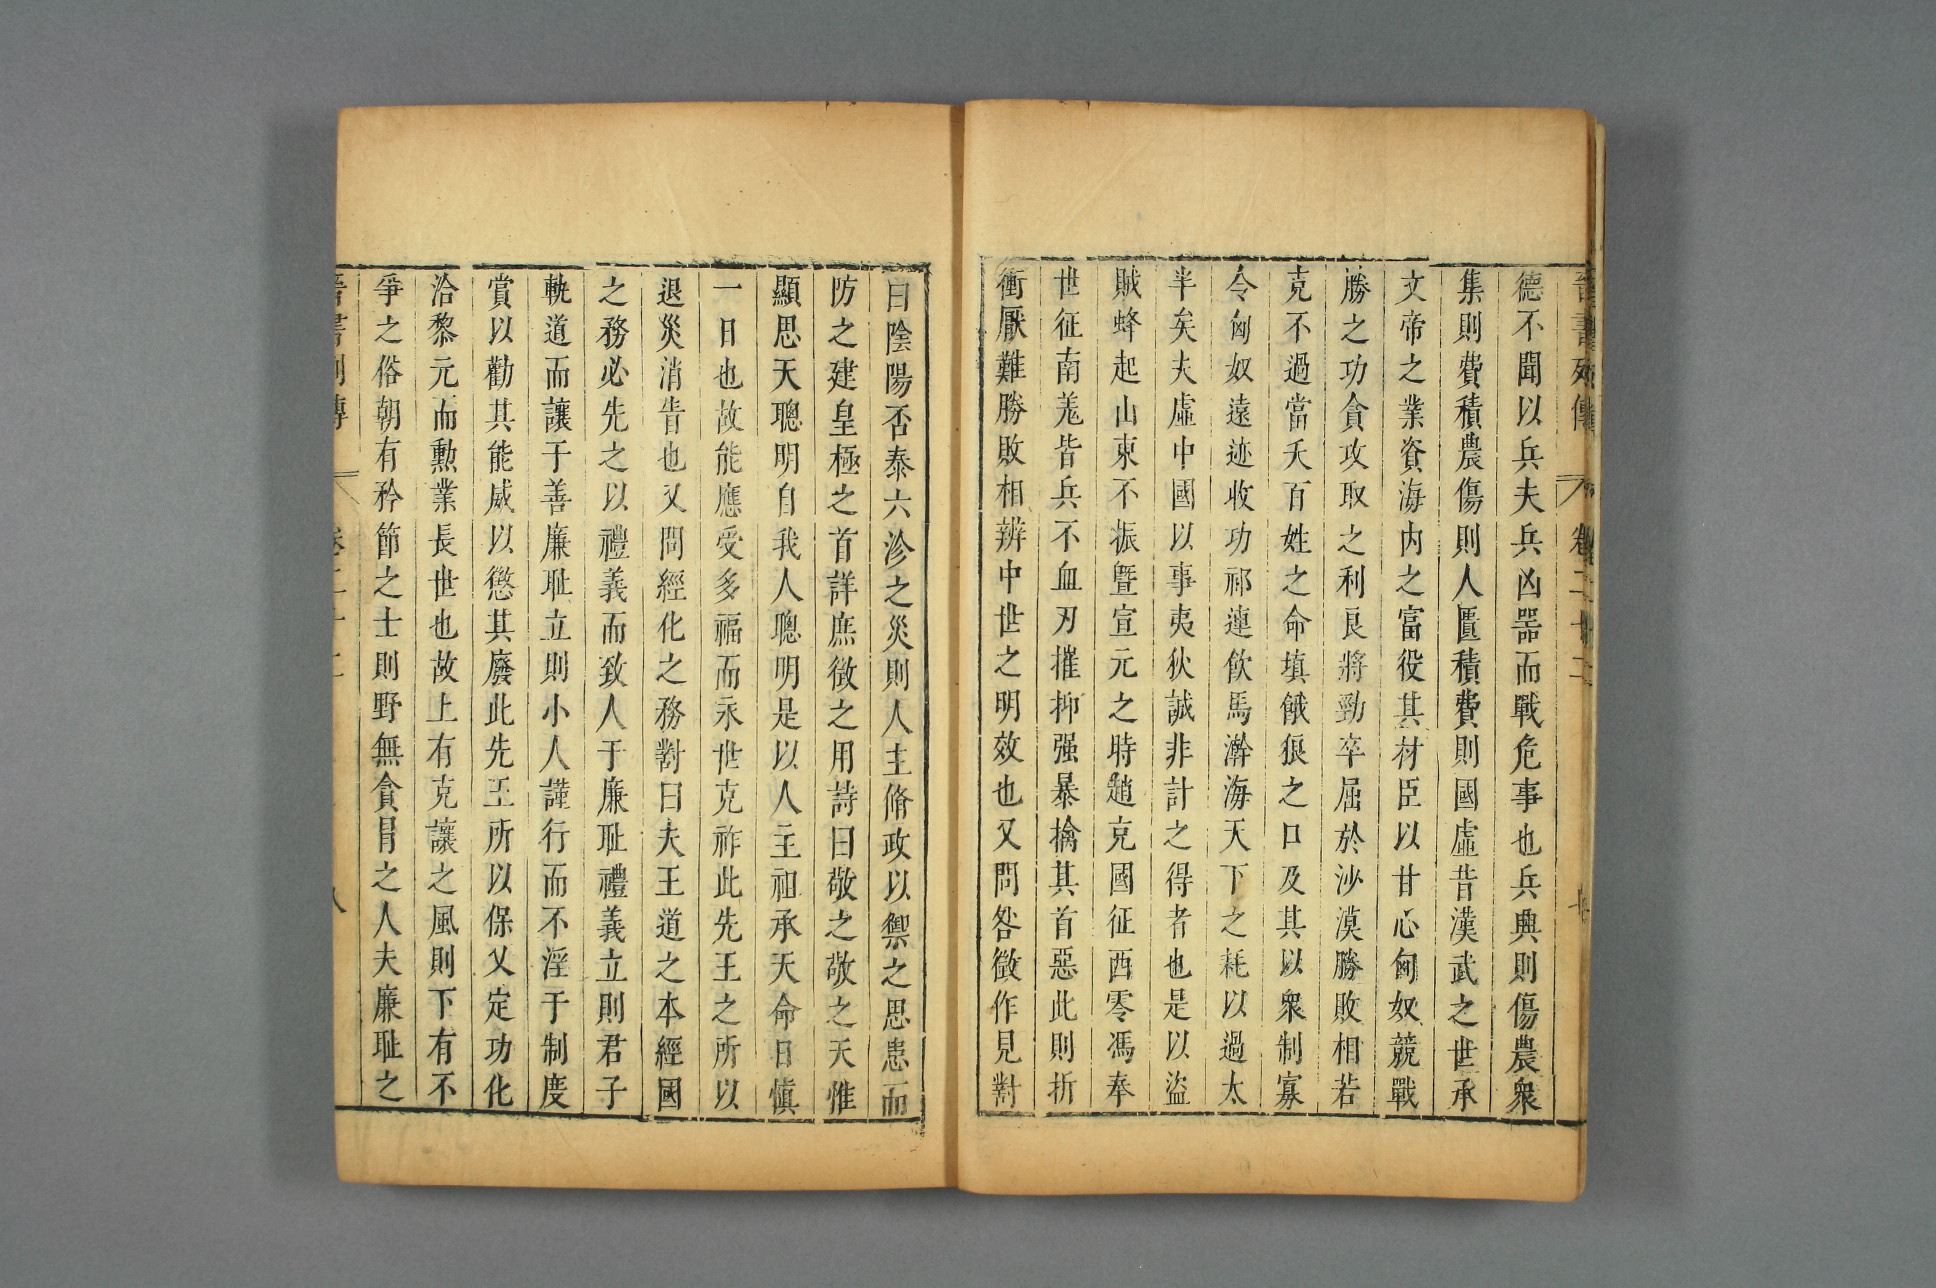 晉書列傳 卷二十二
德不聞以兵夫兵凶器而戰危事也兵興則傷農衆
集則費積農傷則人匱積費則國虛昔漢武之世承
文帝之業資海内之富役其材臣以甘心匈奴競戰
勝之功貪攻取之利良將勁卒屈於沙漠勝敗相若
克不過當夭百姓之命填餓狼之口及其以衆制寡
令匈奴遠迹收功祁連飲馬瀚海天下之耗以過太
半矣夫虛中國以事夷狄誠非計之得者也是以盜
賊蜂起山東不振曁宣元之時趙充國征西零馮奉
世征南羗皆兵不血刃摧抑强暴擒其首惡此則折
衝厭難勝敗相辨中世之明效也又問咎徵作見對
曰陰陽否泰六沴之災則人主脩政以禦之思患而
防之建皇極之首詳庶徵之用詩曰敬之敬之天惟
顯思天聰明自我人聰明是以人主祖承天命日愼
一日也故能應受多福而永世克祚此先王之所以
退災消眚也又問經化之務對曰夫王道之本經國
之務必先之以禮義而致人于廉耻禮義立則君子
軌道而讓于善廉耻立則小人謹行而不淫于制度
賞以勸其能威以懲其廢此先王所以保乂定功化
洽黎元而勳業長世也故上有克讓之風則下有不
爭之俗朝有矜節之士則野無貪冒之人夫廉耻之
晉書列傳 卷二十二 八